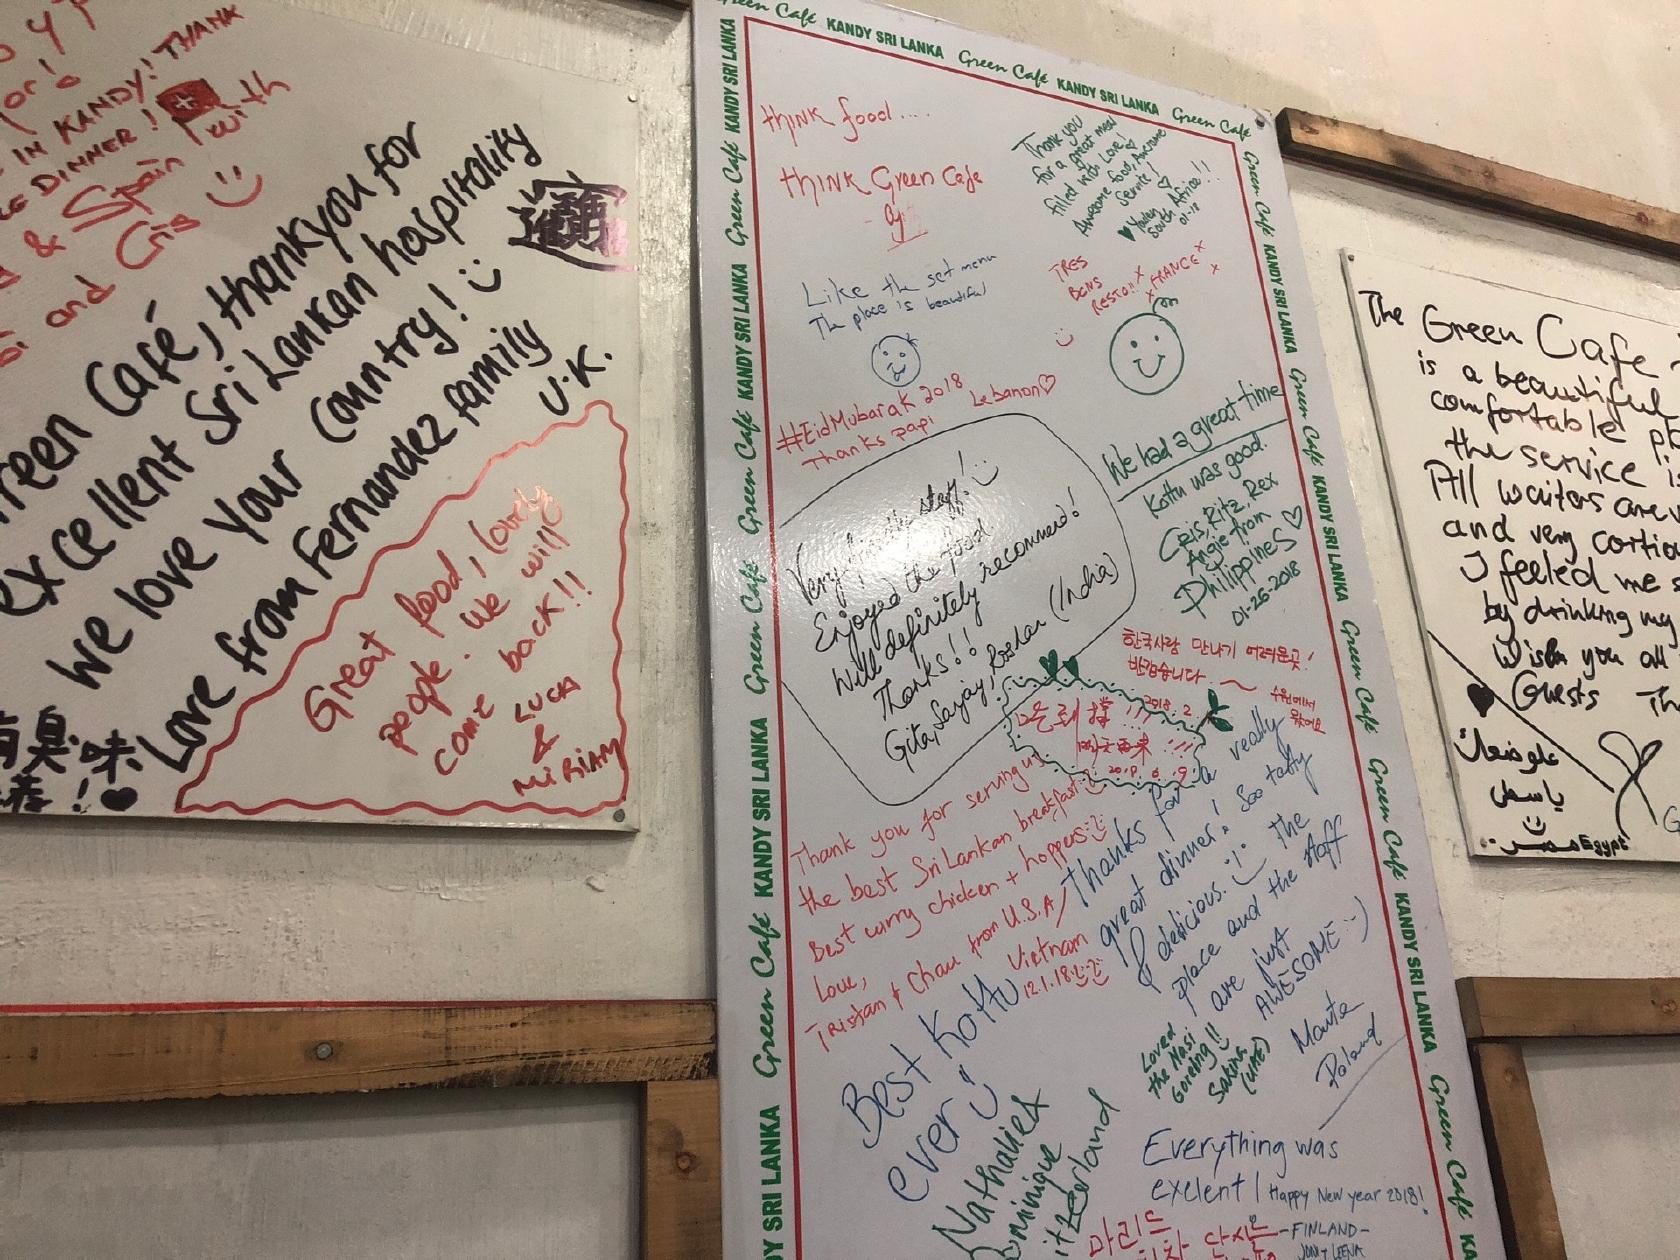 IN KANDY! THANK
DINNER!
with
& Spain
and Cris
Green Café, thankyou for
excellent Sri Lankan hospitality
We love Your Country!
Love from Fernandez family
U.K.
Great food, lovely
people. We will
come back!!
LUCA
&
MIRIAM
臭味
Green Café KANDY SRI LANKA Green Café KANDY SRI LANKA Green Café
think food....
think Green Cafe
Thank you
for a great meal
filled with Love!
Awesome food, Awesome
Service!
South Africa!!
01-18
Like the set menu
The place is beautiful
TRES
BONS
RESTO!! FRANCE
#EidMubarak 2018
Thanks papi
Lebanon
We had a great time
Kottu was good.
Cris, Ritz, Rex
Angie from
Philippines
01-26-2018
Very friendly staff!
Enjoyed the food.
Will definitely recommend!
Thanks!!
Gita, Sanjay, Roshan (India)
한국사람 만나기 어려운곳!
반갑습니다
수원에서
왔어요
2018. 2
吃到撑!!!
2018. 6. 9
Thank you for serving us
the best Sri Lankan breakfast
Best curry chicken + hoppers
Love,
Tristan & Chau from U.S.A/
Vietnam
12.1.18
Thanks for a really
great dinner! Soo tasty
& delicious. The
place and the staff
are just
AWESOME :-)
Marta
Poland
Best Kottu
ever
Nathalie &
Loved
the Nasi
Goreng!!
Sakina
(UAE)
Everything was
exelent! Happy New year 2018!
-FINLAND-
JONI & LEENA
The Green Cafe
is a beautiful
comfortable
the service is
All waiters are
and very
I feeled me
by drinking my
Wish you all
Guests
ياسمين
مصر Egypt
Green Café KANDY SRI LANKA Green Café KANDY SRI LANKA Green Café KANDY SRI LANKA Green Café KANDY SRI LANKA
Green Café KANDY SRI LANKA Green Café KANDY SRI LANKA Green Café Green Café KANDY SRI LANKA Green Café